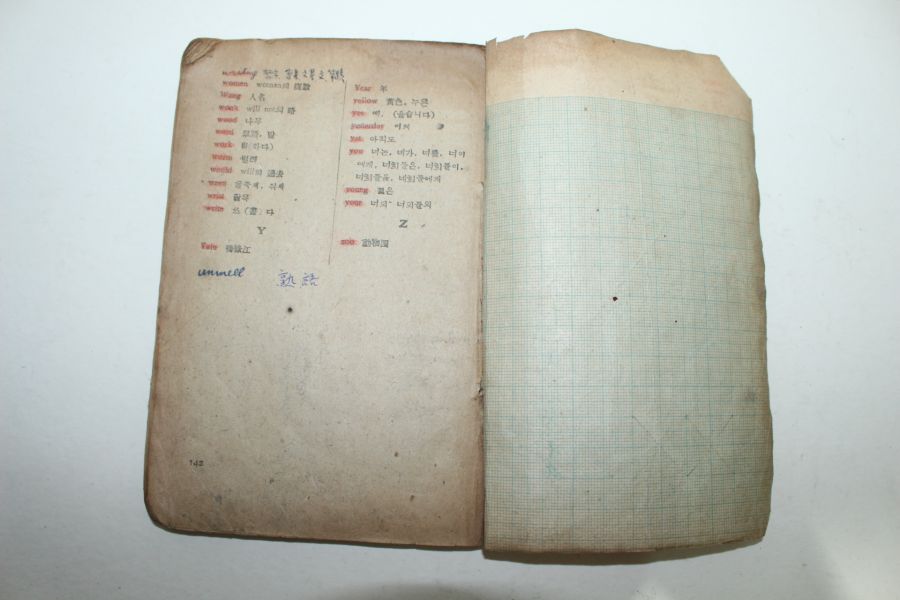 women women의 複數
Wang 人名
wook will not의 略
wood 나무
word 單語, 말
work 일(하다)
worm 벌레
would will의 過去
write 쓰(書)다
Y
Yalu 鴨綠江
unwell 熟語
142
Year 年
yellow 黃色, 누른
yes 예, (옳습니다)
yesterday 어제
yet 아직도
you 너는, 네가, 너를, 너이
에게, 너희들은, 너희들이,
너희들을, 너희들에게
young 젊은
your 너의 너희들의
Z
zoo 動物園